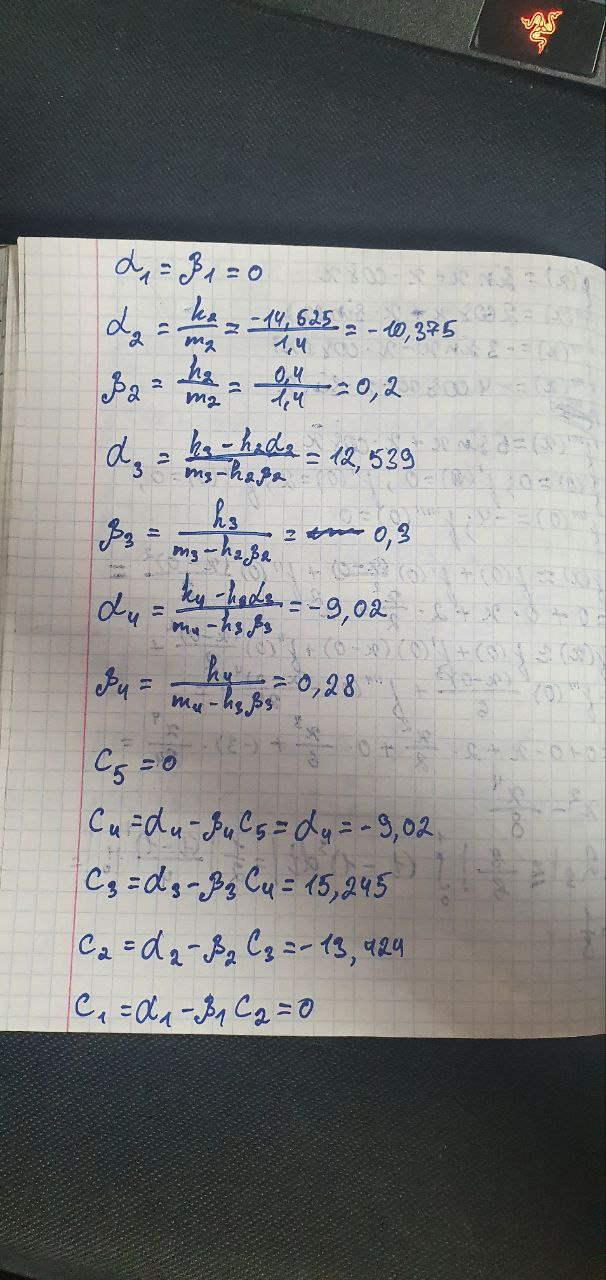 α₁ = β₁ = 0
α₂ = k₂/m₂ = -14,625/1,4 = -10,375
β₂ = h₂/m₂ = 0,4/1,4 = 0,2
α₃ = (k₃ - h₂α₂)/(m₃ - h₂β₂) = 12,539
β₃ = h₃/(m₃ - h₂β₂) = 0,3
α₄ = (k₄ - h₃α₃)/(m₄ - h₃β₃) = -9,02
β₄ = h₄/(m₄ - h₃β₃) = 0,28
C₅ = 0
C₄ = α₄ - β₄C₅ = α₄ = -9,02
C₃ = α₃ - β₃C₄ = 15,245
C₂ = α₂ - β₂C₃ = -13,424
C₁ = α₁ - β₁C₂ = 0